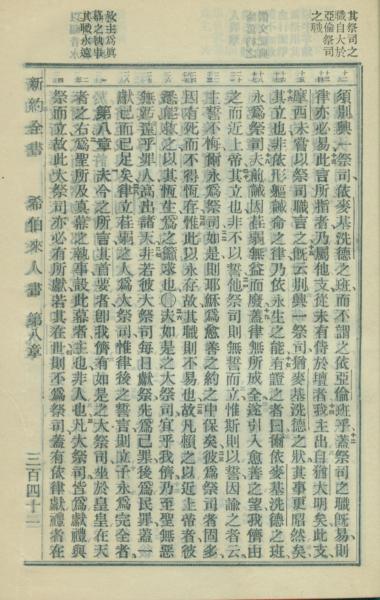 其祭司之
職自大於
亞倫祭司
之職
須別興一祭司依麥基洗德之班而不謂之依亞倫班乎蓋祭司之職旣易則
律亦必易此言所指者乃屬他支從未有侍於壇者我主出自猶大明矣此支
摩西未嘗以祭司職言之旣云別興一祭司猶麥基洗德之狀其事更昭然矣
其立也非依形軀誡命之律乃依永生之能有證之者曰爾依麥基洗德之班
永爲祭司夫前誡因荏弱無益而廢蓋律無所成全遂引入愈善之望我儕由
之而近上帝其立也非不以誓他祭司則無誓而立惟斯則以誓因諭之者云
主誓不悔爾永爲祭司如是則耶穌爲愈善之約之中保矣彼爲祭司者固多
因有死而不得恆存惟此以永存故其職則不易也故凡賴之以近上帝者彼
悉能救之以其恆生爲之籲求也○夫如是之大祭司宜乎我儕乃至聖無惡
無玷遠乎罪人高出諸天非若彼大祭司每日獻祭先爲己罪後爲民罪蓋一
獻己而已足矣律立荏弱之人爲大祭司惟律後之誓言則立子永爲完全者
故主爲真
幕之執事
其職永遠
第八章 夫今之所言其首要者卽我儕有如是之大祭司坐於皇皇在天
者之右爲聖所及真幕之執事設此幕者主也非人也凡大祭司皆爲獻禮與
祭而立故此大祭司亦必有所獻若其在世則不爲祭司蓋有依律獻禮者在
新約全書 希伯來人書 第八章 三百四十二